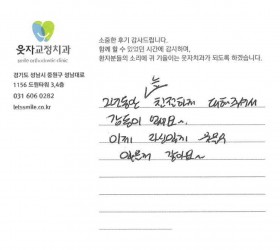 웃자교정치과
smile orthodontic clinic
경기도 성남시 중원구 성남대로
1156 도원타워 3,4층
031 606 0282
letssmile.co.kr
소중한 후기 감사드립니다.
함께 할 수 있었던 시간에 감사하며,
환자분들의 소리에 귀 기울이는 웃자치과가 되도록 하겠습니다.
늘
친절하게 대해주셔서
감동이 였네요~.
이제 자신있게 웃을수
있을거 같아요~.